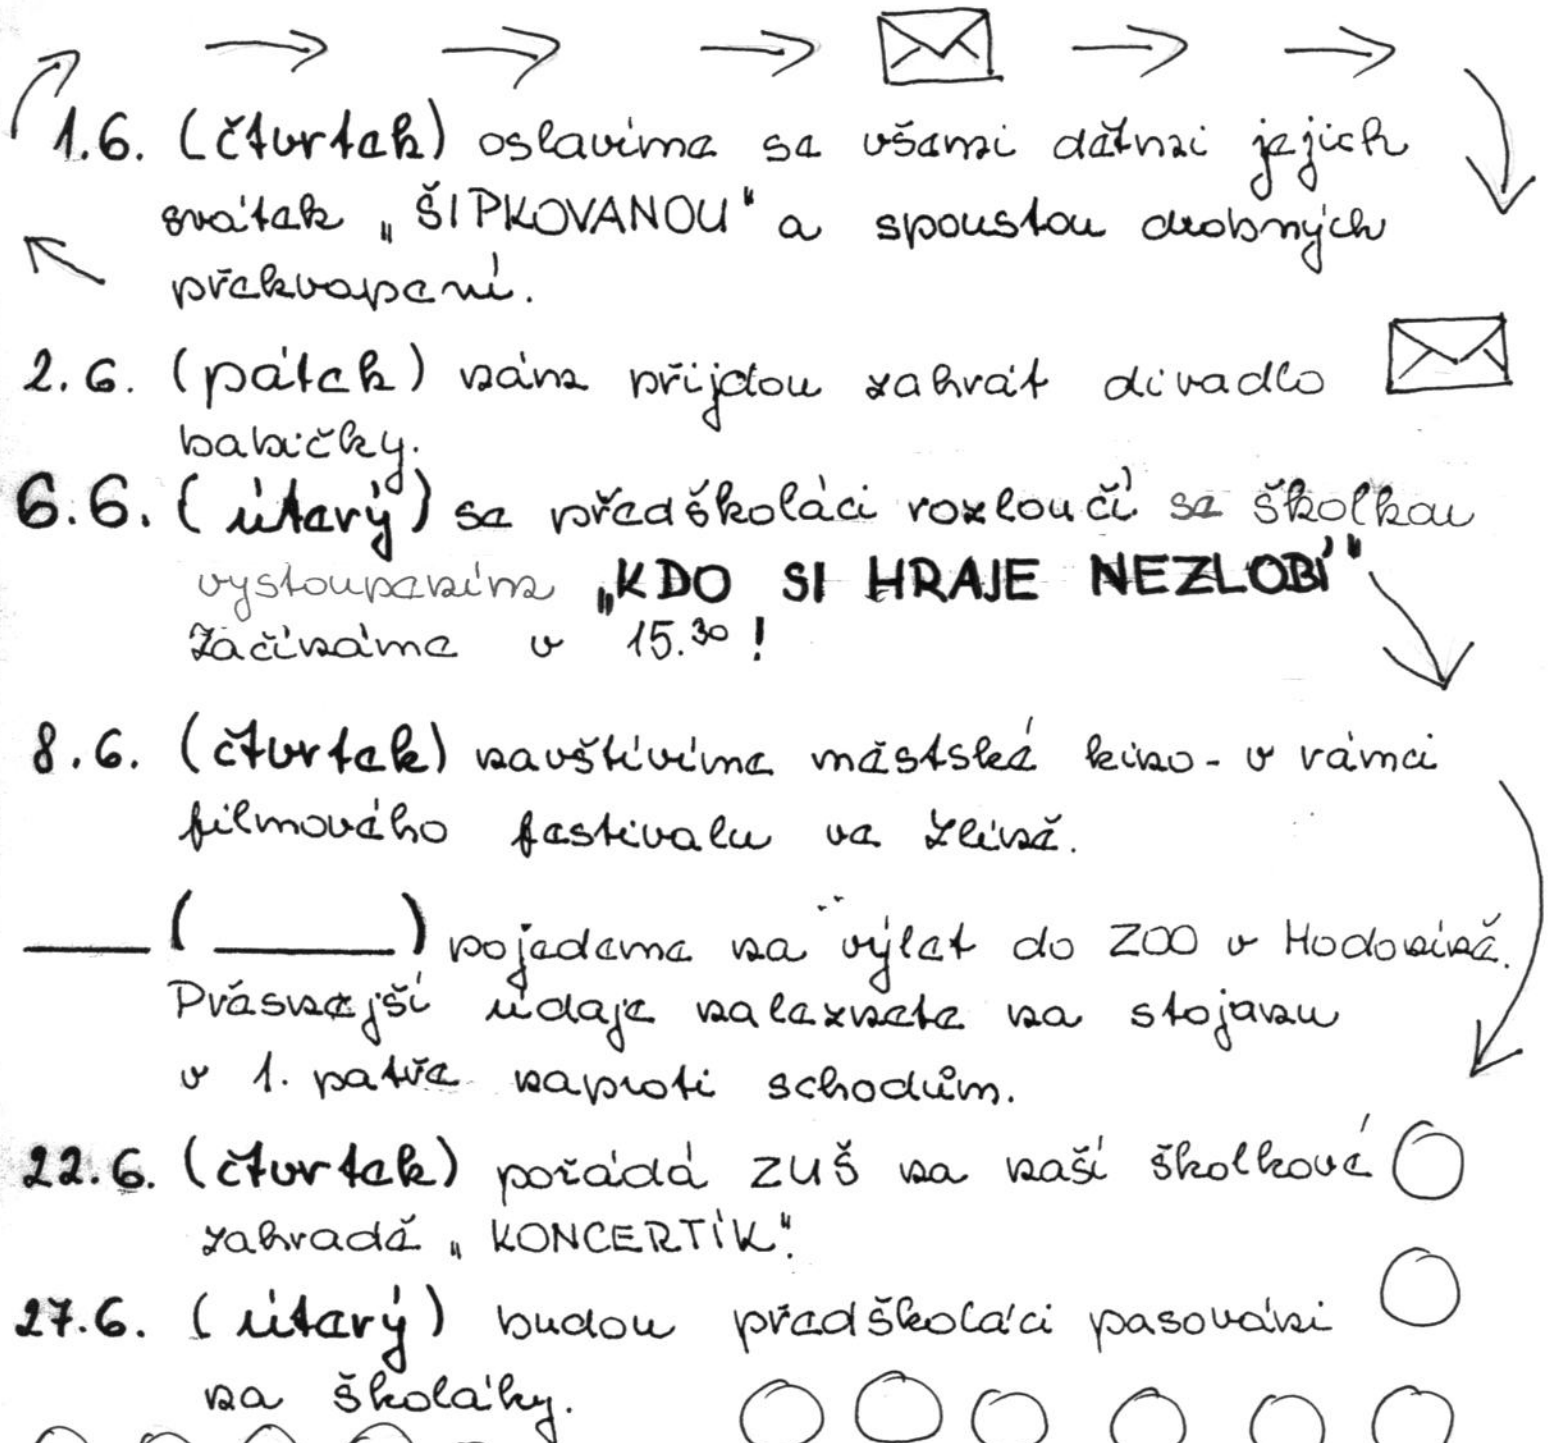 1.6. (čtvrtek) oslavíme se všemi dětmi jejich
svátek „ŠIPKOVANOU" a spoustou drobných
překvapení.
2.6. (pátek) nám přijdou zahrát divadlo
babičky.
6.6. (úterý) se předškoláci rozloučí se školkou
vystoupením „KDO SI HRAJE NEZLOBÍ"
Začínáme v 15.30!
8.6. (čtvrtek) navštívíme městské kino - v rámci
filmového festivalu ve Zlíně.
____ ( ______ ) pojedeme na výlet do ZOO v Hodoníně.
Přesnější údaje naleznete na stojanu
v 1. patře naproti schodům.
22.6. (čtvrtek) pořádá ZUŠ na naší školkové
zahradě „KONCERTÍK".
27.6. (úterý) budou předškoláci pasováni
na školáky.